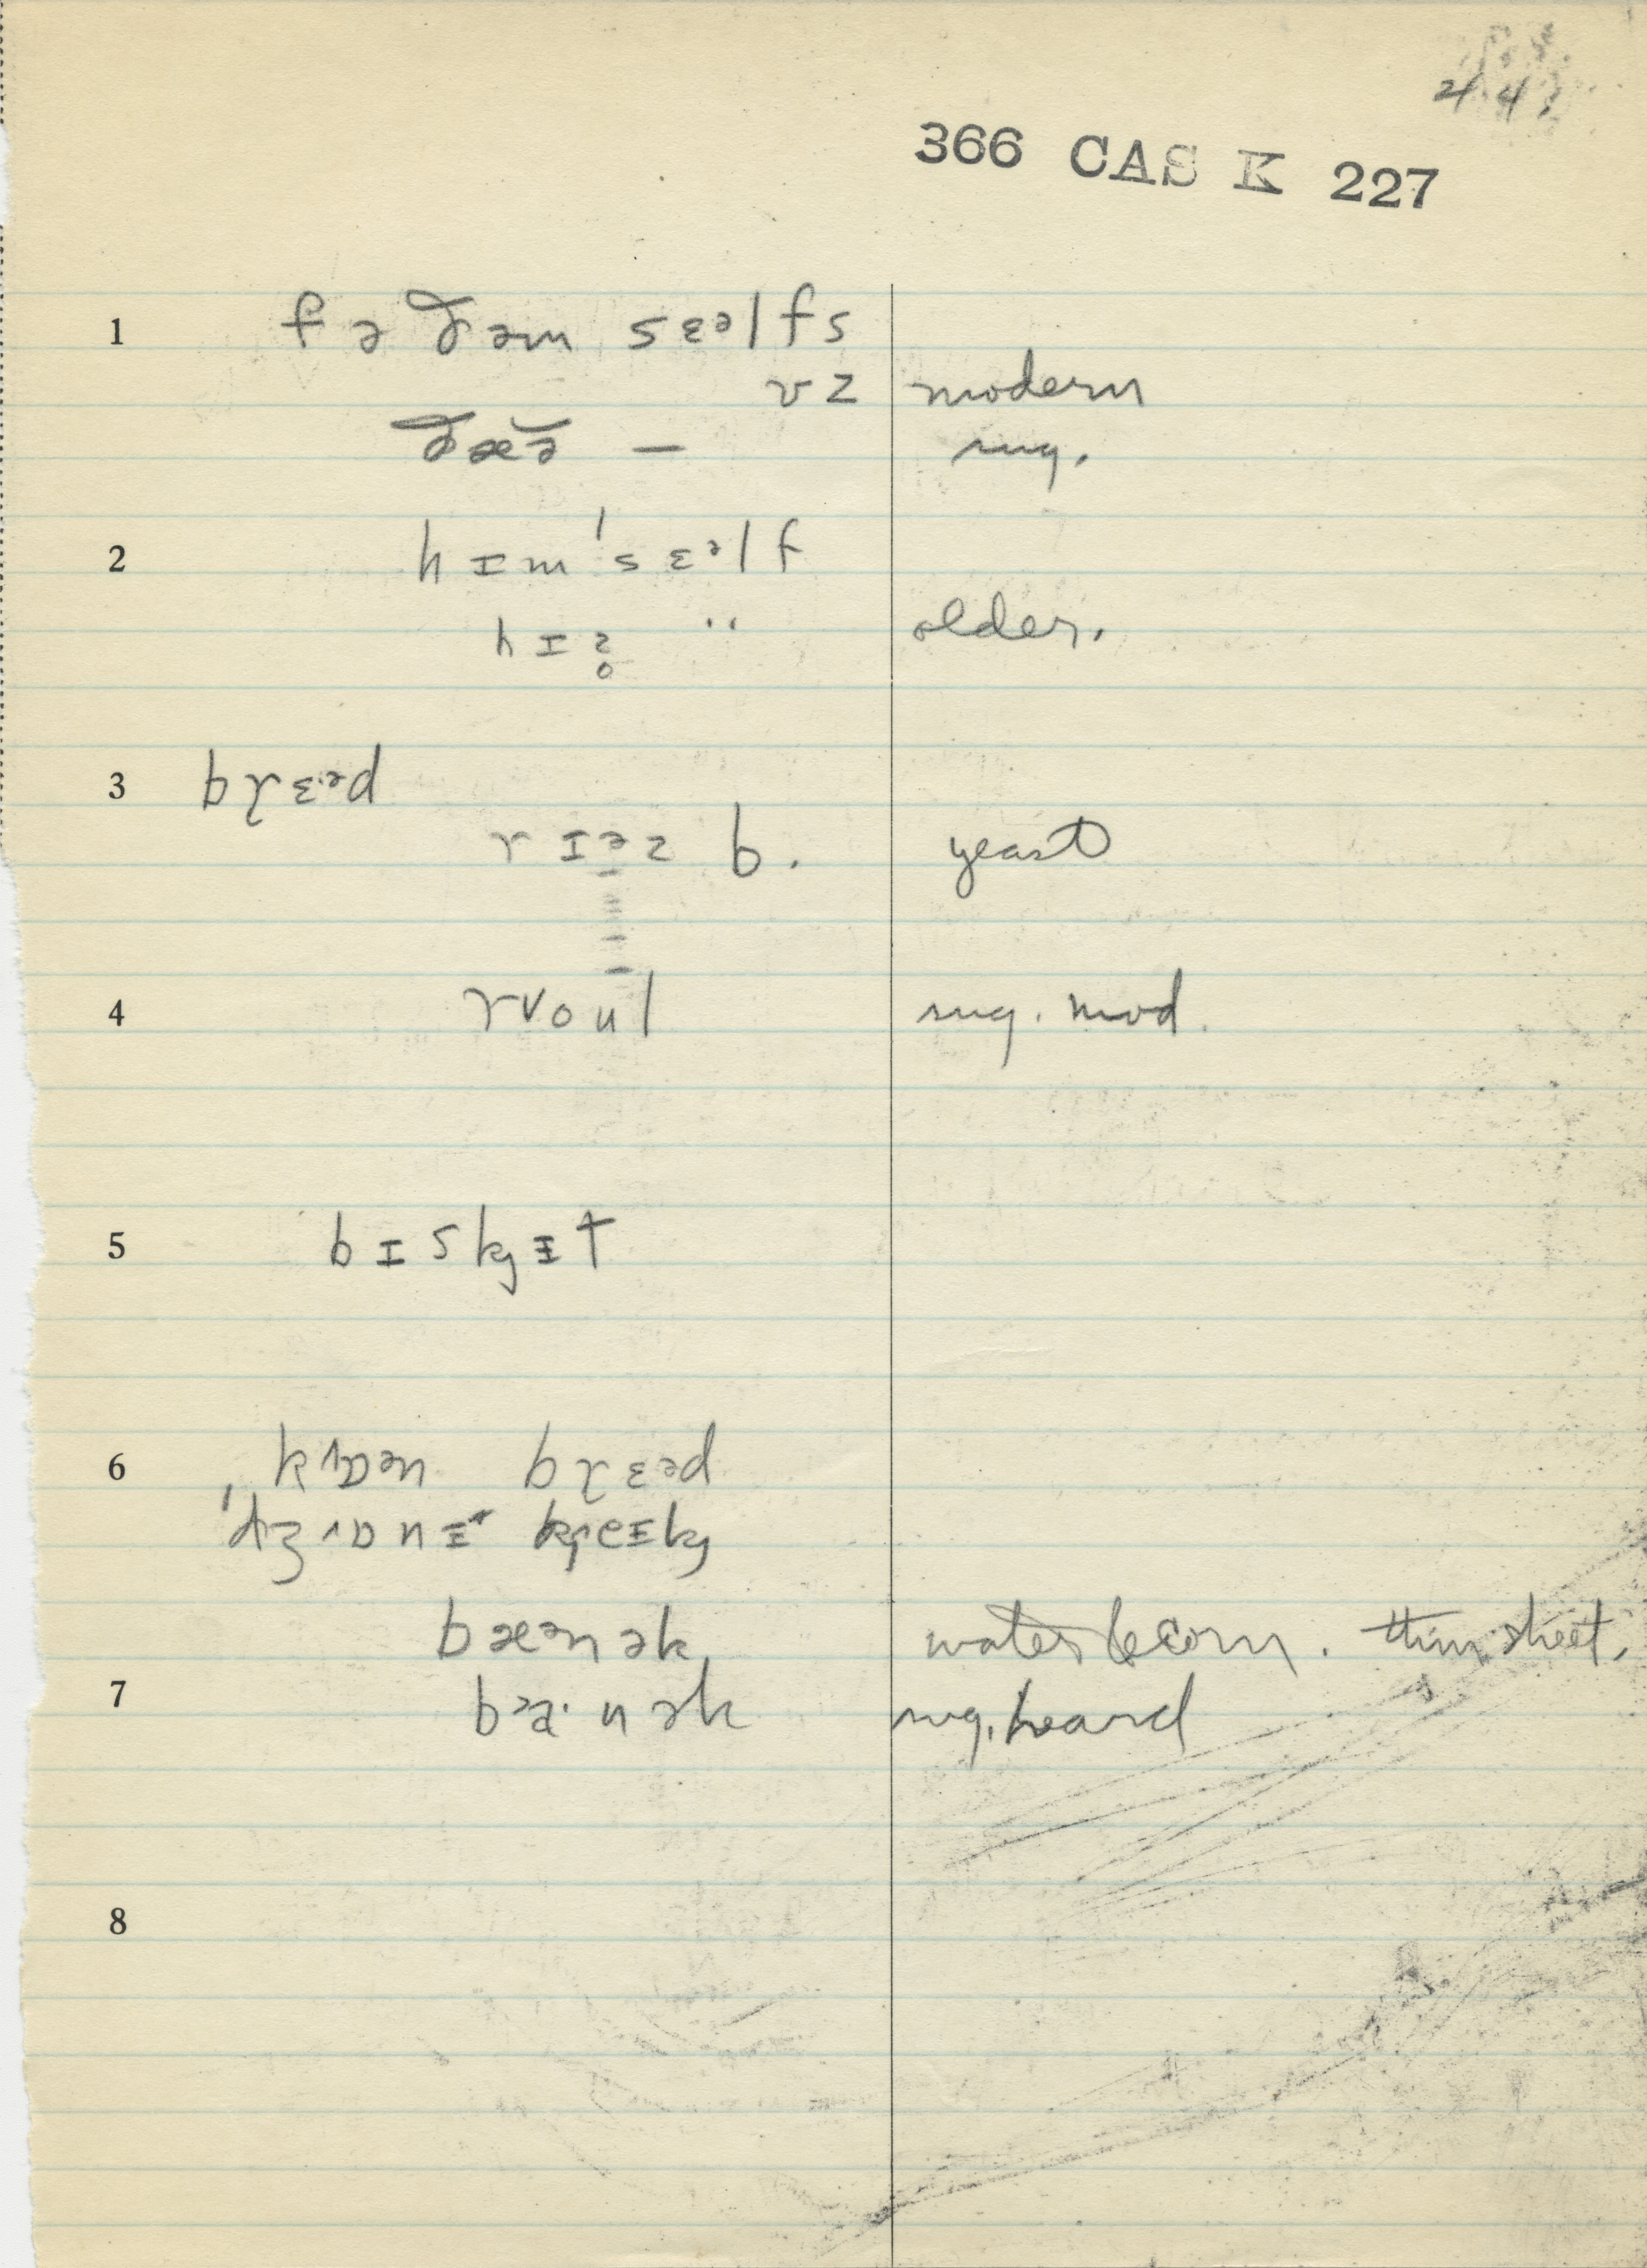 44
366 CAS K 227
1 fə ðəm sɛəlfs
vz modern
ðæə̆ — sug.
2 hɪm'sɛəlf
hɪz̥ " older.
3 brɛ·əd
rɪəz b. yeast
4 roul sug. mod.
5 bɪskjɪt
6 brɛəd
bæənək water & corn. thin sheet.
7 nək sug. heard
8